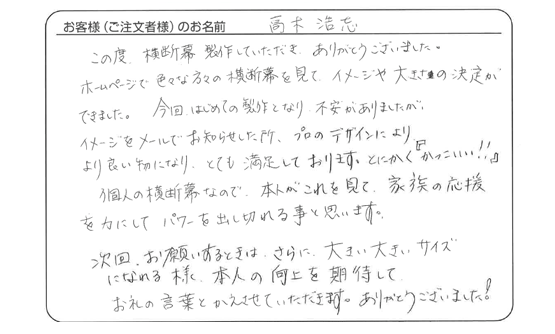 お客様(ご注文者様)のお名前 高木 浩志
この度、横断幕製作していただき、ありがとうございました。
ホームページで色々な方々の横断幕を見て、イメージや大きさの決定が
できました。今回、はじめての製作となり、不安がありましたが、
イメージをメールでお知らせした所、プロのデザインにより
より良い物になり、とても満足しております。とにかく『かっこいい!!』
個人の横断幕なので、本人がこれを見て、家族の応援
を力にしてパワーを出し切れる事と思います。
次回、お願いするときは、さらに、大きい大きいサイズ
になれる様に、本人の向上を期待して、
お礼の言葉とかえさせていただきます。ありがとうございました!